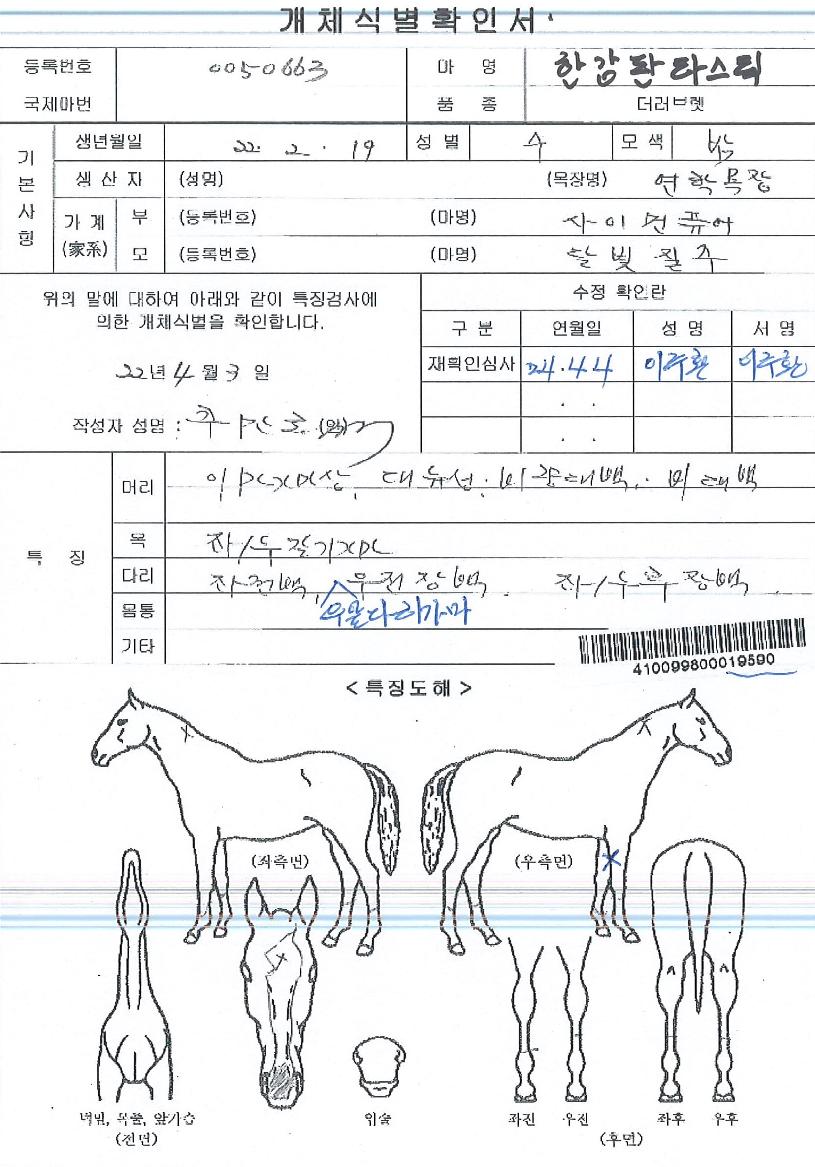 개체식별확인서
등록번호 0050663 마 명 한강판타스틱
국제마번 품 종 더러브렛
기본사항 생년월일 22. 2. 19 성 별 수 모 색 밤
생 산 자 (성명) (목장명) 연학목장
가 계 (家系) 부 (등록번호) (마명) 사이먼퓨어
모 (등록번호) (마명) 달빛질주
위의 말에 대하여 아래와 같이 특징검사에
의한 개체식별을 확인합니다.
22년 4월 3일
작성자 성명 : (인)
수정 확인란
구 분 연월일 성 명 서 명
재확인심사 24.4.4 이주환 이주환
. .
. .
특 징
머리
목 좌/우 절기
다리 좌전백, 우전장백. 좌/우후장백
우앞다리가마
몸통
기타
410099800019590
< 특징도해 >
(좌측면) (우측면)
턱밑, 목줄, 앞가슴
(전면)
입술
좌진 우진 좌후 우후
(후면)